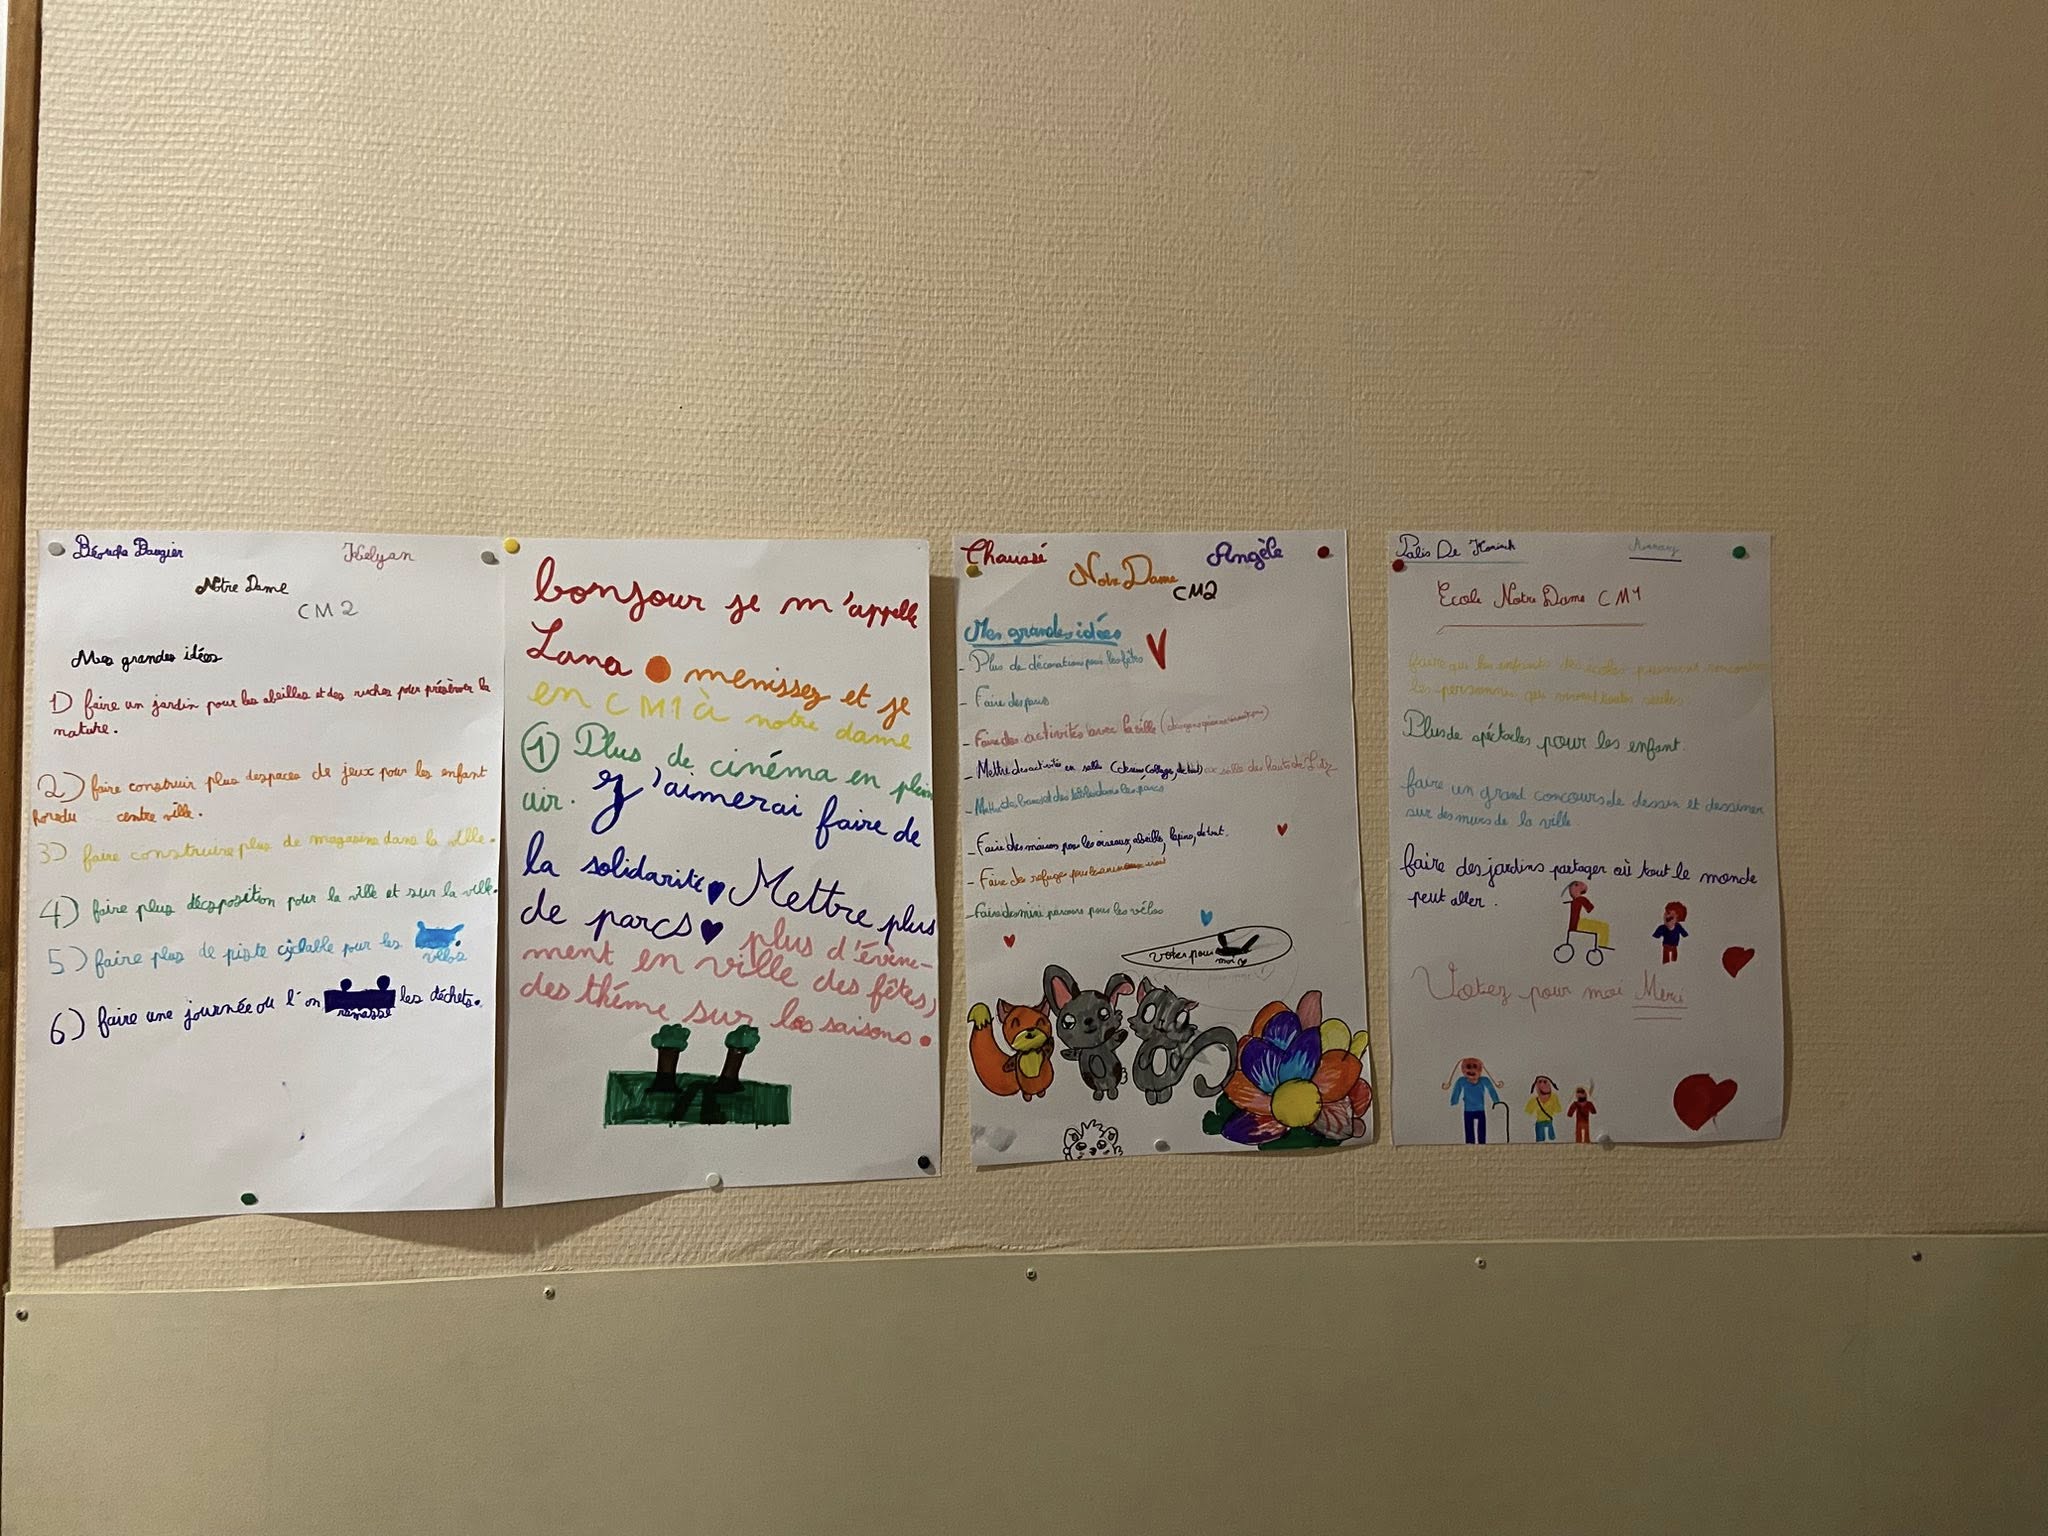 Kelyan
Notre Dame
CM2
Mes grandes idées
1) faire un jardin pour les abeilles et des ruches pour préserver la
nature.
2) faire construir plus despaces de jeux pour les enfant
horedu centre ville.
3) faire construire plus de magasins dans la ville.
4) faire plus décoposition pour la ville et sur la ville.
5) faire plus de piste ciclable pour les
vélos
6) faire une journée ou l'on les déchets.
ramasse
bonjour je m'appelle
Lana menissez et je
en CM1 à notre dame
1 Plus de cinéma en plein
air. j'aimerai faire de
la solidarité Mettre plus
de parcs plus d'évène-
ment en ville des fêtes,
des théme sur les saisons.
Chaussé Angèle
Notre Dame
CM2
Mes grandes idées
- Plus de décorations pour les fêtes
- Faire des parcs
- Faire des activités avec la ville
- Mettre des activités en salle
- Mettre des bancs et des tables dans les parcs
- Faire des maisons pour les oiseaux, abeilles, lapins, de tout.
- Faire des refuge pour les animaux
- Faire des mini parcours pour les vélos
votes pour
moi
Palis De
Ecole Notre Dame CM1
faire que les enfants des écoles puissent rencontrer
les personnes qui vivent toutes seules
Plus de spéctacles pour les enfant.
faire un grant concours de dessin et dessiner
sur des murs de la ville.
faire des jardins partager où tout le monde
peut aller.
Votez pour moi Merci